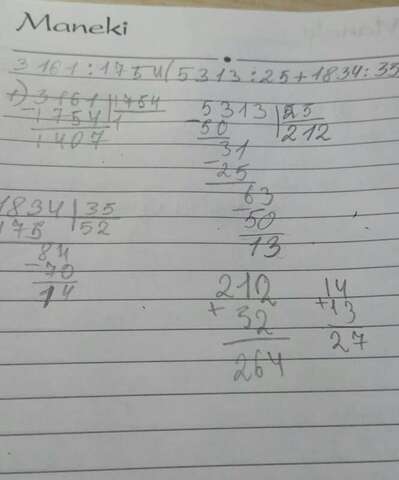 Maneki
3161:1754(5313:25+1834:35
1) 3161 | 1754
- 1754 | 1
1407
5313 | 25
- 50 | 212
31
- 25
63
- 50
13
1834 | 35
175 | 52
84
- 70
14
212
+ 52
264
14
+ 13
27